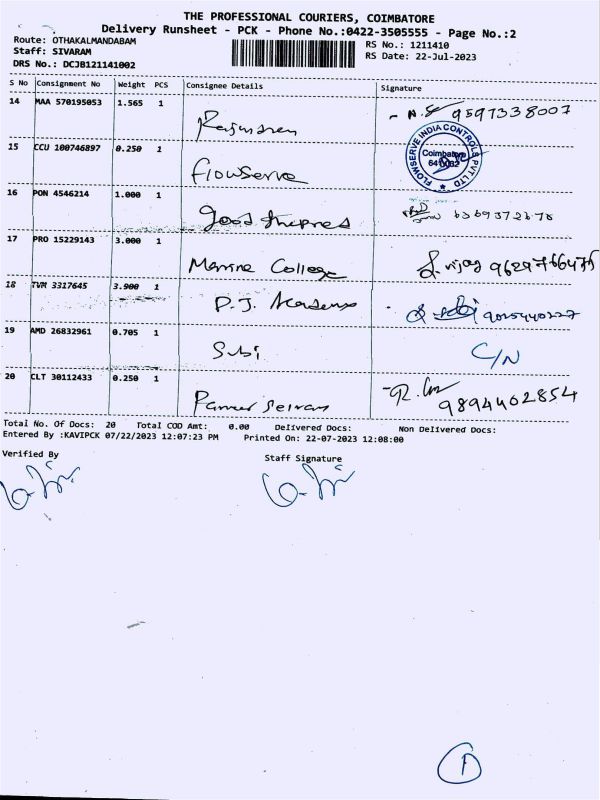 THE PROFESSIONAL COURIERS, COIMBATORE
Delivery Runsheet - PCK - Phone No.:0422-3505555 - Page No.:2
Route: OTHAKALMANDABAM
Staff: SIVARAM
DRS No.: DCJB121141002
RS No.: 1211410
RS Date: 22-Jul-2023
S No Consignment No Weight PCS Consignee Details Signature
14 MAA 570195053 1.565 1 9597338007
15 CCU 100746897 0.250 1 flowserve
FLOWSERVE INDIA CONTROLS PVT LTD
Coimbatore
16 PON 4546214 1.000 1 good
17 PRO 15229143 3.000 1 Marine College
18 TVM 3317645 3.900 1 P.J. 9025440227
19 AMD 26832961 0.705 1 Subi C/N
20 CLT 30112433 0.250 1 9894402854
Total No. Of Docs: 20 Total COD Amt: 0.00 Delivered Docs: Non Delivered Docs:
Entered By :KAVIPCK 07/22/2023 12:07:23 PM Printed On: 22-07-2023 12:08:00
Verified By Staff Signature
1